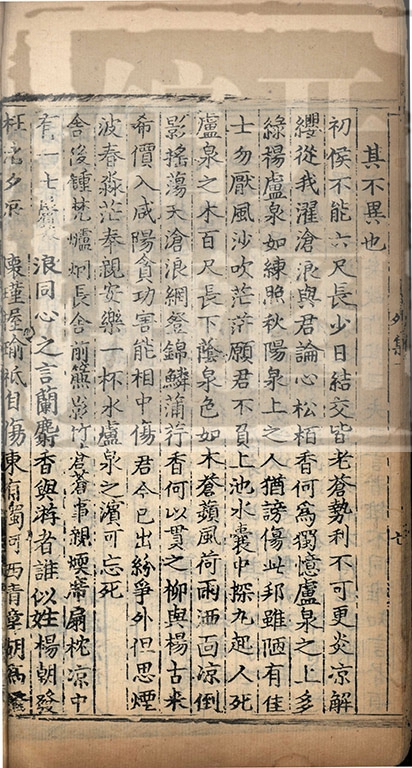 其不異也
初侯不能六尺長少日結交皆老蒼勢利不可更炎涼解
纓從我濯滄浪與君論心松栢香何爲獨憶盧泉之上多
綠楊盧泉如練照秋陽泉上之人猶謗傷此邦雖陋有佳
士勿厭風沙吹茫茫願君不負上池水囊中探九起人死
盧泉之木百尺長下蔭泉色如木蒼蘋風荷雨洒面涼倒
影搖蕩天滄浪網登錦鱗蒲荇香何以貫之柳與楊古来
希價入咸陽貪功害能相中傷君今已出紛爭外但思煙
波春淼茫奉親安樂一杯水盧泉之濱可忘死
舍後鍾梵爐烟長舍前簾影竹蒼蒼事親煗席扇枕凉中
有一士鬢
浪同心之言蘭麝香與游者誰似姓楊朝發
枉渚夕
懷瑾握瑜祗自傷東有濁河西青
外集